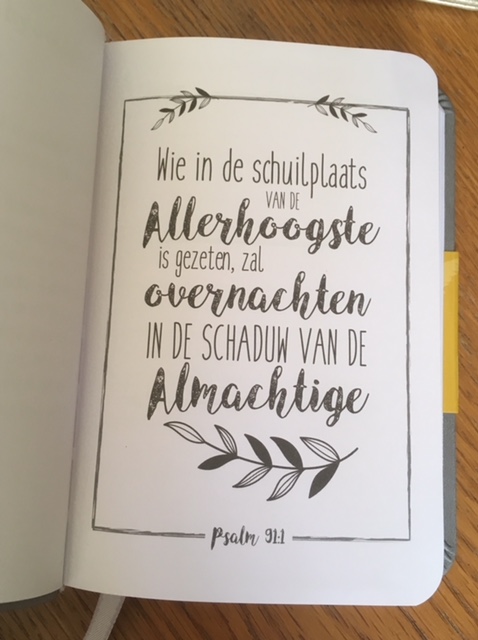 Wie in de schuilplaats
VAN DE
Allerhoogste
is gezeten, zal
overnachten
IN DE SCHADUW VAN DE
Almachtige
Psalm 91:1